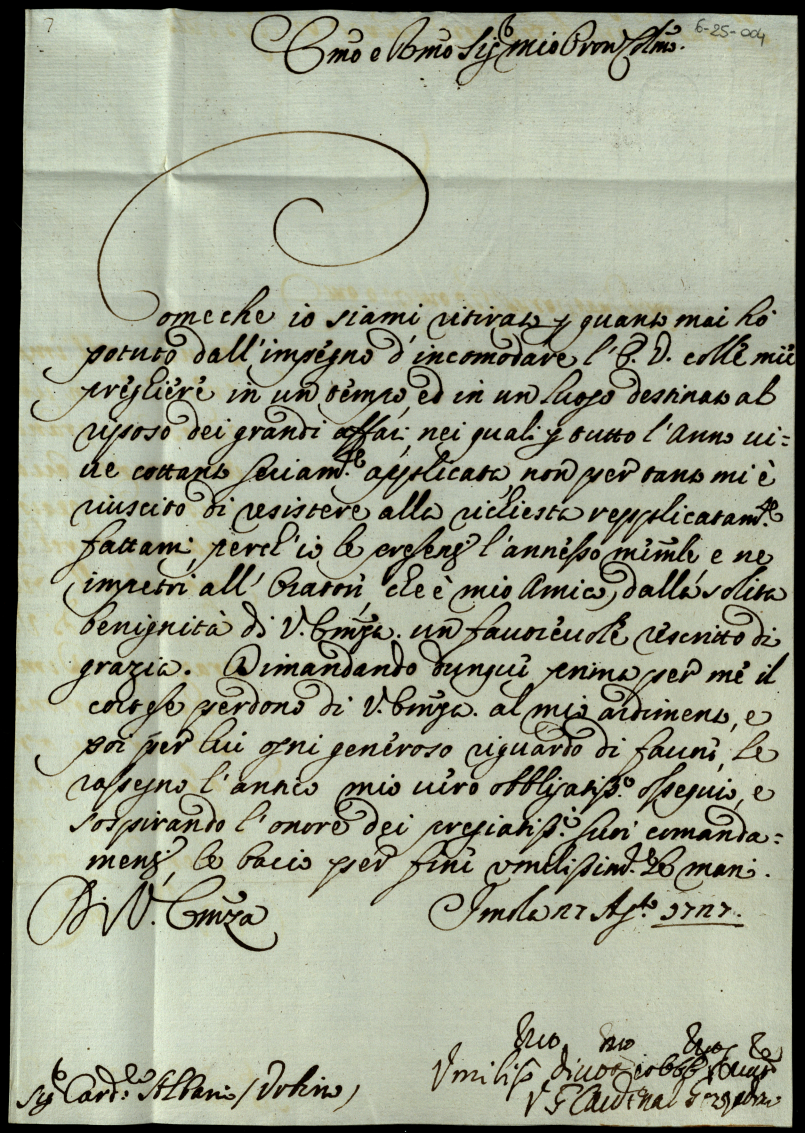 6-25-004
Emo e Rmo Sigr mio Pron Colmo.
Comeche io siami ritirato p quanto mai hò
potuto dall'impegno d'incomodare l'E. V. colle mie
preghiere in un tempo, ed in un luogo destinato al
riposo dei grandi affari, nei quali p tutto l'Anno vi=
ve cottanto seriamte applicata, non per tanto mi è
riuscito di resistere alla richiesta repplicatamte
fattami, perch'io le presenti l'annesso mimle e ne
impetri all'Oratore, che è mio Amico, dalla solita
benignità di V. Emza. un favorevole rescritto di
grazia. Dimandando dunque prima per me il
cortese perdono di V. Emza. al mio ardimento, e
poi per lui ogni generoso riguardo di favore, le
rassegno l'antico mio vero obbligatisso ossequio, e
sospirando l'onore dei pregiatissi suoi comanda=
menti, le bacio per fine umilissimte le mani.
Di V. Emza Imola 27 Agto 1727.
Umiliss divot obb
Sigr Cardle Albani / Urbino /
Cardinal